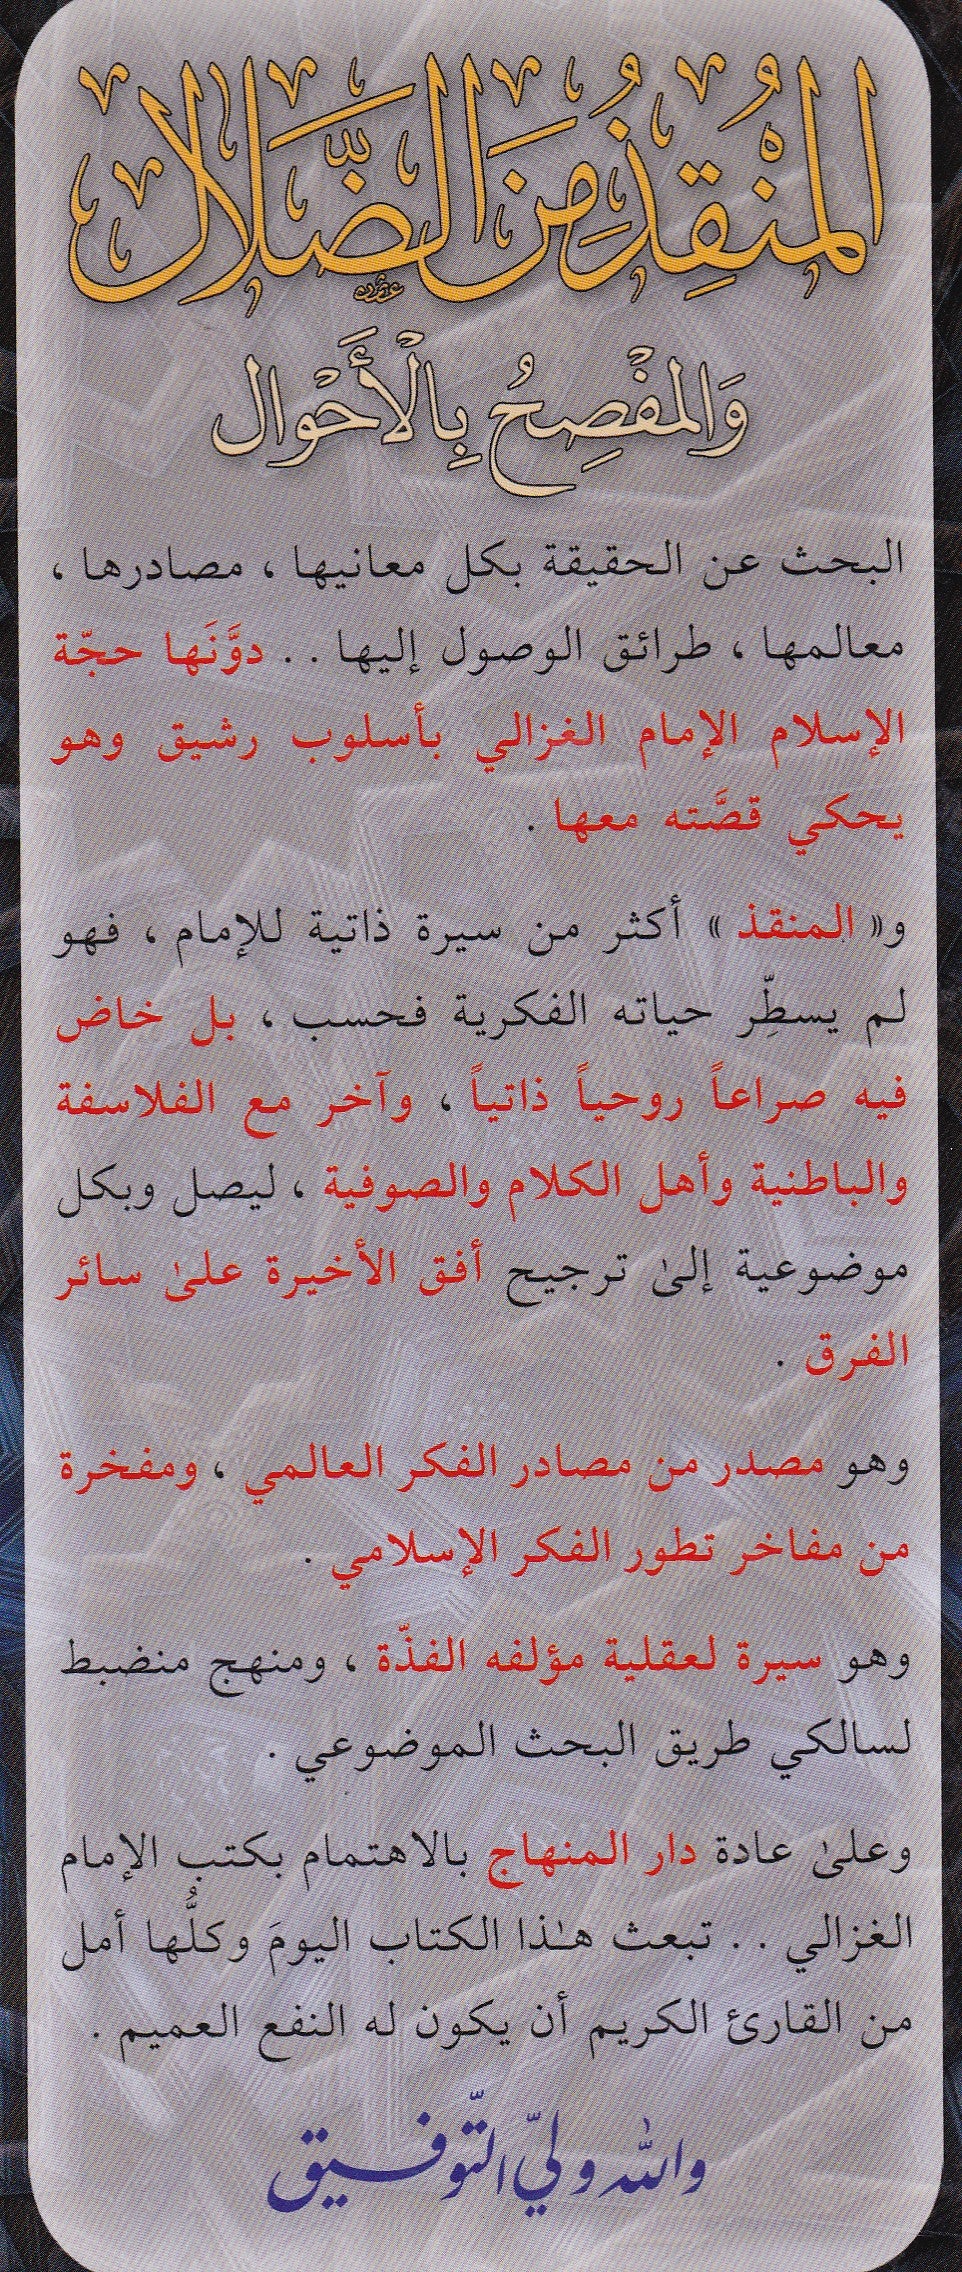 المُنْقِذُ مِنَ الضَّلَال
وَالمُفْصِحُ بِالْأَحْوَال
البحث عن الحقيقة بكل معانيها ، مصادرها ،
معالمها ، طرائق الوصول إليها . . دوَّنَها حجّة
الإسلام الإمام الغزالي بأسلوب رشيق وهو
يحكي قصَّته معها .
و« المنقذ » أكثر من سيرة ذاتية للإمام ، فهو
لم يسطِّر حياته الفكرية فحسب ، بل خاض
فيه صراعاً روحياً ذاتياً ، وآخر مع الفلاسفة
والباطنية وأهل الكلام والصوفية ، ليصل وبكل
موضوعية إلىٰ ترجيح أفق الأخيرة علىٰ سائر
الفرق .
وهو مصدر من مصادر الفكر العالمي ، ومفخرة
من مفاخر تطور الفكر الإسلامي .
وهو سيرة لعقلية مؤلفه الفذّة ، ومنهج منضبط
لسالكي طريق البحث الموضوعي .
وعلىٰ عادة دار المنهاج بالاهتمام بكتب الإمام
الغزالي . . تبعث هـٰذا الكتاب اليومَ وكلُّها أمل
من القارئ الكريم أن يكون له النفع العميم .
والله وليّ التّوفيق